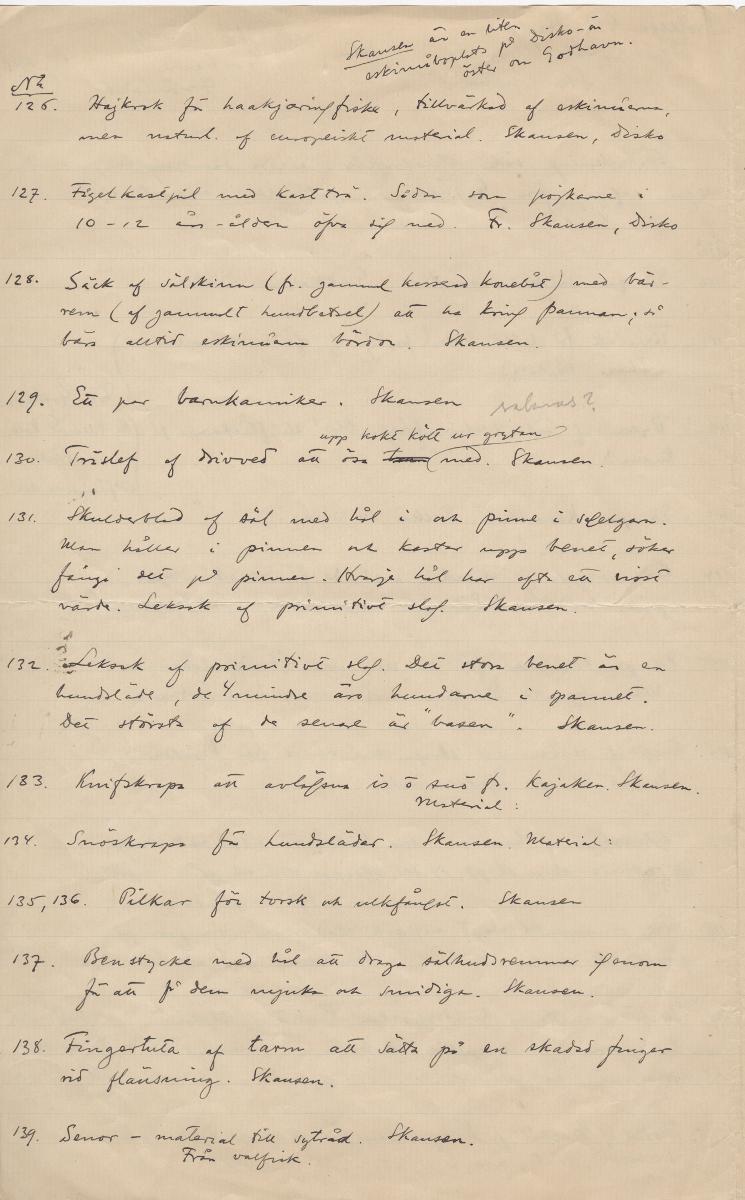 Skansen är en liten
eskimåboplats på Disko-ön
öster om Godhavn.
No
126. Hajkrok för haakjæringfiske, tillvärkad af eskimåerna,
men naturl. af europeiskt material. Skansen, Disko
127. Fågelkastpil med kastträ. Sådan som pojkarne i
10-12 års-åldern öfva sig med. Fr. Skansen, Disko
128. Säck af sälskinn (fr. gammal kasserad konebåt) med bär-
rem (af gammalt hundbetsel) att ha kring pannan; så
bärs alltid eskimåerna bördor. Skansen.
129. Ett par barnkamiker. Skansen saknas?
upp kokt kött ur grytan
130. Träslef af drivved att ösa med. Skansen.
131. Skulderblad af säl med hål i och pinne i segelgarn.
Man håller i pinnen och kastar upp benet, söker
fånga det på pinnen. Hvarje hål har ofta ett visst
värde. Leksak af primitivt slag. Skansen.
132. Leksak af primitivt slag. Det stora benet är en
hundsläde, de 4 mindre äro hundarne i spannet.
Det största af de senare är "basen". Skansen.
133. Knifskrapa att avlägsna is o snö fr. Kajaken. Skansen.
Material:
134. Snöskrapa för hundsläder. Skansen. Material:
135, 136. Pilkar för torsk och ulkfångst. Skansen
137. Benstycke med hål att draga sälhudsremmar igenom
för att få dem mjuka och smidiga. Skansen.
138. Fingertuta af tarm att sätta på en skadad finger
vid flänsning. Skansen.
139. Senor - material till sytråd. Skansen.
Från valfisk.